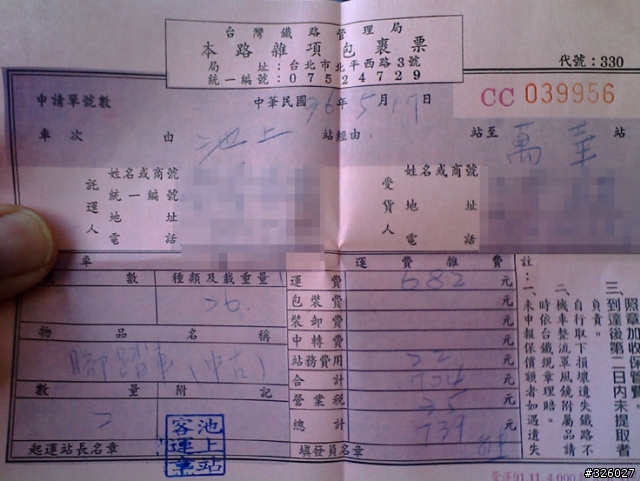 台灣鐵路管理局
本路雜項包裹票
局　址：台北市北平西路3號
統一編號：07524729
代號：330
申請單號數　中華民國 96 年 5 月 17 日
CC 039956
車次　由 池上 站經由　站至 萬華 站
託運人
姓名或商號
統一編號
地址
電話
受貨人
姓名或商號
地址
電話
車　運費雜費
數　種類及載重量
26
運費 682 元
包裝費 元
裝卸費 元
中轉費 元
站務費用 22 元
合計 704 元
營業稅 35 元
總計 739 元
物品名稱
腳踏車 (中古)
數量　附記
二
起運站長名章
池上站
客運章
填發員名章
註：一、未申報保價額者如遇遺失
時依台鐵規章理賠。
二、機車整流罩風鏡附屬品請
自行取下損壞遺失鐵路不
負責。
三、到達後第二日內未提取者
照章加收保管費。
#326027